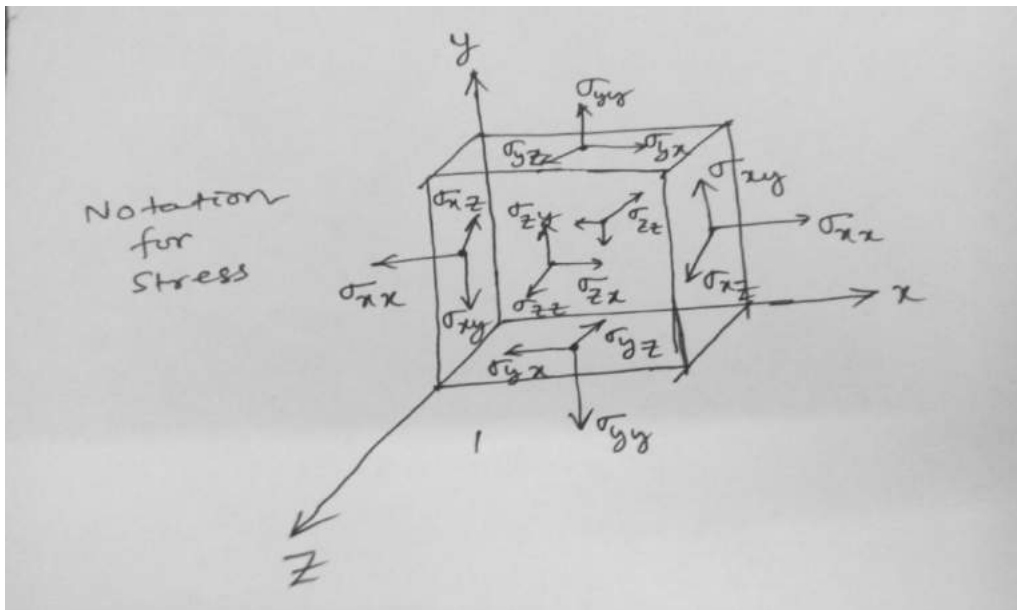 y
σyy
σyz σyx
σxy
Notation
for
Stress
σxz
σzy
σzz
σxx
σxx
σxy
σzz
σzx
σxz
x
σyx
σyz
σyy
Z